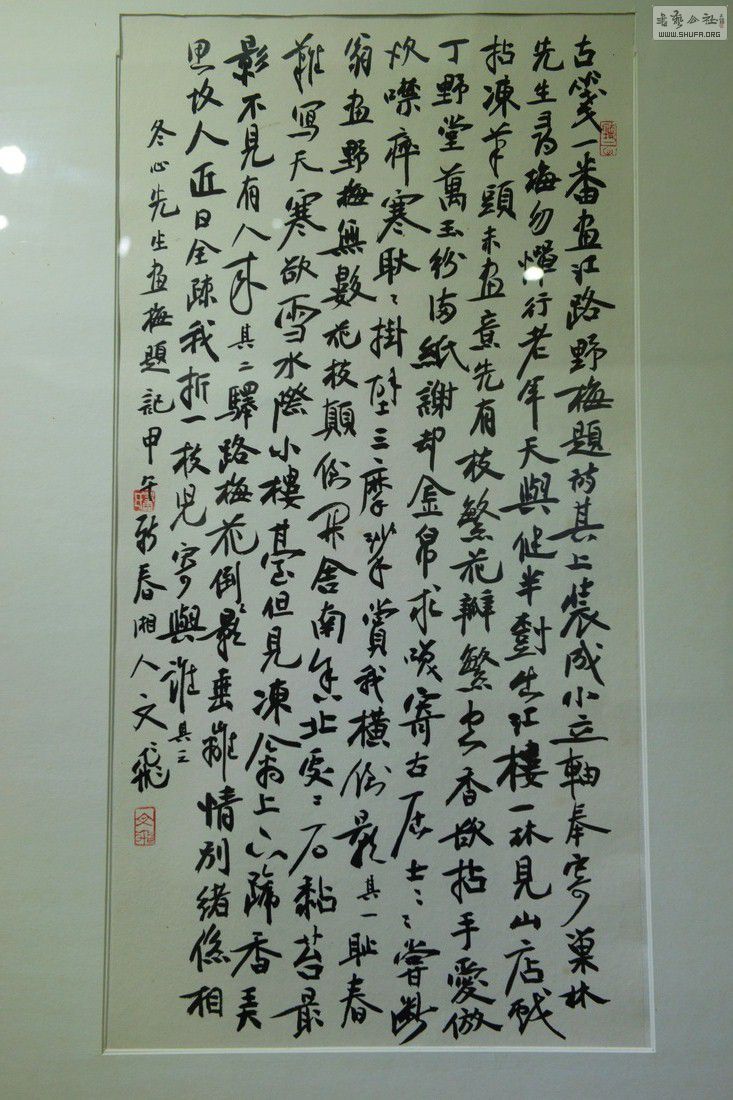 古箋一番畫江路野梅題詩其上裝成小立軸奉寄菓林
先生尋梅勿憚行老年天與健山樹出江樓一林見山店戲
拈凍筆頭未畫意先有枝繁花瓣繁空香欲拈手愛倣
丁野堂萬玉紛滿紙謝却金帛求笑寄古居士〻嘗斷
炊噤痒寒耿〻掛壁三摩挲賞我橫倒影其一耻春
翁畫野梅無數花枝顛倒開舍南舍北處〻石黏苔最
難寫天寒欲雪水際小樓臺但見凍禽上下蹄香弄
影不見有人來其二驛路梅花倒影垂離情別緒係相
思故人近日全疎我折一枝兒寄與誰其三
冬心先生畫梅題記甲午新春湘人文飛
文飛
書藝公社
WWW.SHUFA.ORG